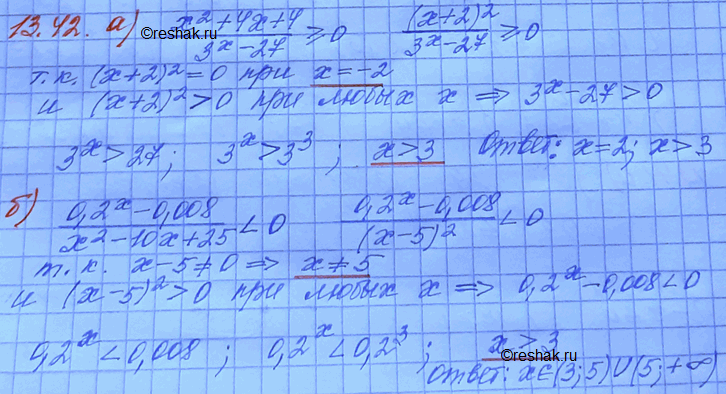 13.42. а) (x²+4x+4)/(3ˣ-27) ≥ 0   (x+2)²/(3ˣ-27) ≥ 0
©reshak.ru
т.к. (x+2)²=0 при x=-2
и (x+2)²>0 при любых x ⇒ 3ˣ-27>0
3ˣ>27; 3ˣ>3³; x>3 Ответ: x=2; x>3
б) (0,2ˣ-0,008)/(x²-10x+25) < 0   (0,2ˣ-0,008)/(x-5)² < 0
т.к. x-5≠0 ⇒ x≠5
и (x-5)²>0 при любых x ⇒ 0,2ˣ-0,008<0
0,2ˣ<0,008; 0,2ˣ<0,2³; x>3
Ответ: x∈(3;5)∪(5;+∞)
©reshak.ru